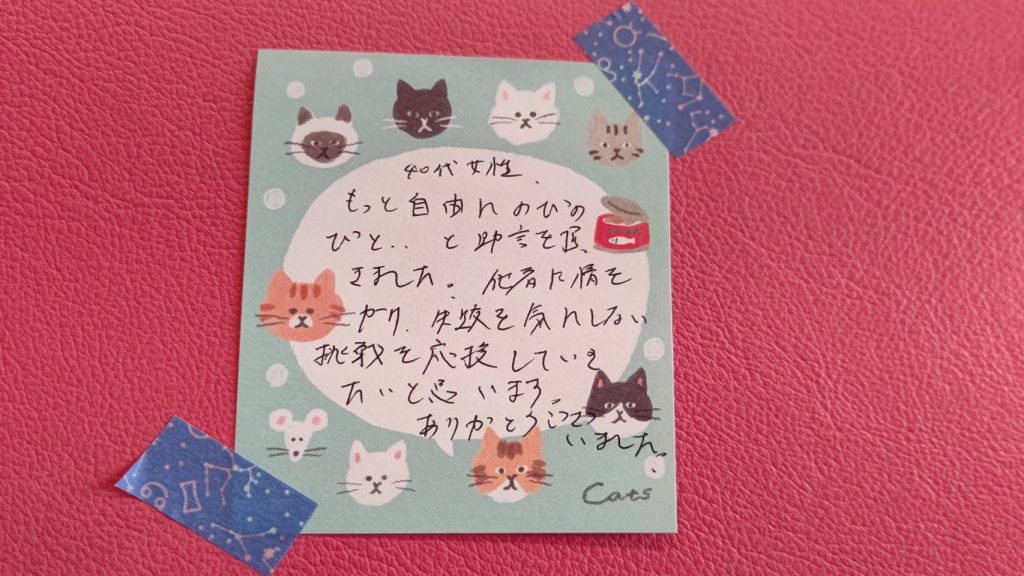 40代女性、
もっと自由にのびの
びと‥ と助言を頂
きました。他者に情を
やり、失敗を気にしない
挑戦を応援していき
たいと思います。
ありがとうござ
いました。
Cats